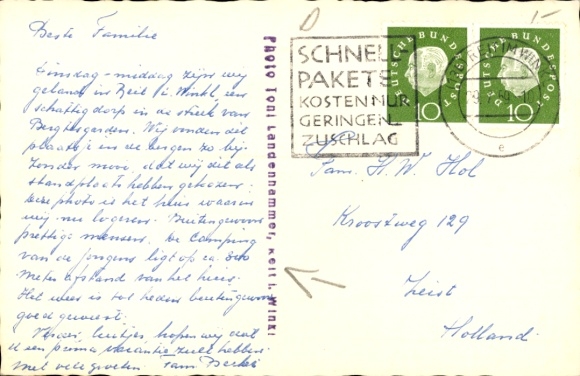 Beste Familie
Dinsdag-middag zijn wij
geland in Reit i. Winkl, een
schattig dorp in de streek van
Berchtesgarden. Wij vonden dit
plaatsje in de bergen zo bij-
zonder mooi, dat wij dit als
standplaats hebben gekozen.
Deze photo is het huis waarin
wij nu logeren. Buitengewoon
prettige mensen. De Camping
van de jongens ligt op ca.
meter afstand van het huis.
Het weer is tot heden buitengewoon
goed geweest.
Verder luitjes hopen wij dat
U een prima vacantie zult hebben.
Met vele groeten. Fam.
Photo Toni Landenhammer, Reit i. Winkl
SCHNELL
PAKETE
KOSTEN NUR
GERINGEN
ZUSCHLAG
REIT IM WINKL
e
DEUTSCHE BUNDESPOST
10
DEUTSCHE BUNDESPOST
10
Fam. H. W. Hol
Kroostweg 129
Zeist
Holland